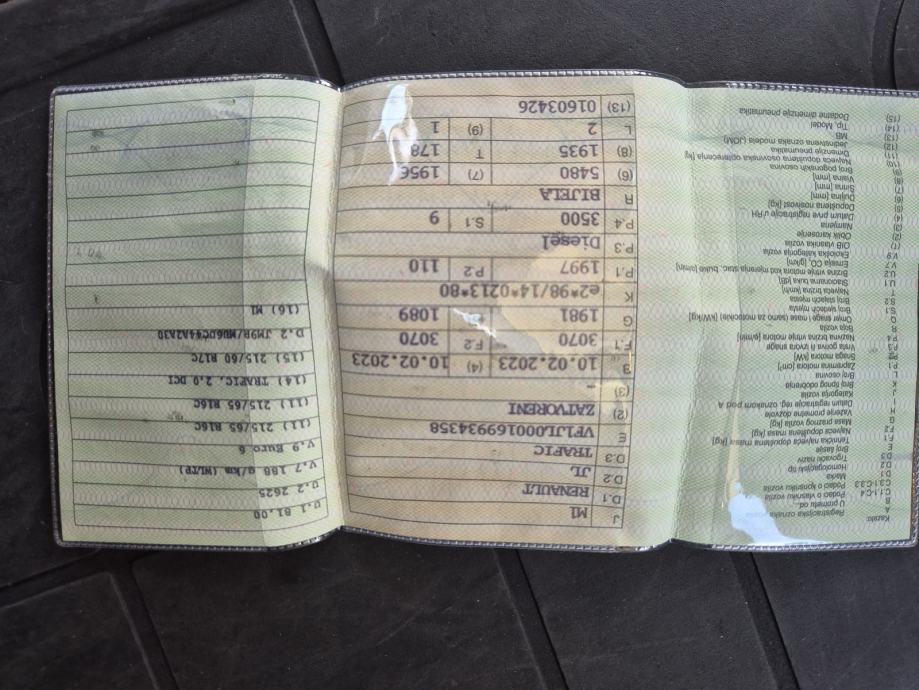 Kazalo:
A Registracijska oznaka
B U prometu od
C.1.1-C.4 Podaci o vlasniku vozila
C.3.1-C.3.3 Podaci o korisniku vozila
D.1 Marka
D.2 Homologacijski tip
D.3 Trgovački naziv
E Broj šasije
F.1 Tehnička najveća dopuštena masa [kg]
F.2 Najveća dopuštena masa [kg]
G Masa praznog vozila [kg]
H Važenje prometne dozvole
I Datum registracije reg. oznakom pod A
J Kategorija vozila
K Broj tipnog odobrenja
L Broj osovina
P.1 Zapremina motora [cm³]
P.2 Snaga motora [kW]
P.3 Vrsta goriva ili izvora snage
P.4 Nazivna brzina vrtnje motora
R Boja vozila
Q Omjer snage i mase (samo za motocikle) [kW/kg]
S.1 Broj sjedećih mjesta
S.2 Broj stajaćih mjesta
T Najveća brzina [km/h]
U.1 Stacionarna buka [dB]
U.2 Brzina vrtnje motora kod mjerenja stac. buke [o/min]
V.7 Emisija CO₂ [g/km]
V.9 Ekološka kategorija vozila
(1) OIB vlasnika vozila
(2) Oblik karoserije
(3) Namjena
(4) Datum prve registracije u RH
(5) Dopuštena nosivost [kg]
(6) Duljina [mm]
(7) Širina [mm]
(8) Visina [mm]
(9) Broj pogonskih osovina
(10) Najveće dopuštena osovinska opterećenja [kg]
(11) Dimenzije pneumatika
(12) Jedinstvena oznaka modela (JOM)
(13) MB
(14) Tip, Model
(15) Dodatne dimenzije pneumatika
J M1
D.1 RENAULT
D.2 JL
D.3 TRAFIC
E VF1JL000169934358
(2) ZATVORENI
(3) -
B 10.02.2023 (4) 10.02.2023
F.1 3070 F.2 3070
G 1981 1089
K e2*98/14*0213*80
P.1 1997 P.2 110
P.3 Diesel
P.4 3500 S.1 9
R BIJELA
(6) 5480 (7) 1956
(8) 1935 T 178
L 2 (9) 1
(13) 01603426
U.1 81.00
U.2 2625
V.7 188 g/km (WLTP)
V.9 Euro 6
(11) 215/65 R16C
(11) 215/65 R16C
(14) TRAFIC 2.0 DCI
(15) 215/60 R17C
D.2 JMPB/MU6DC44A2A30
(16) M1